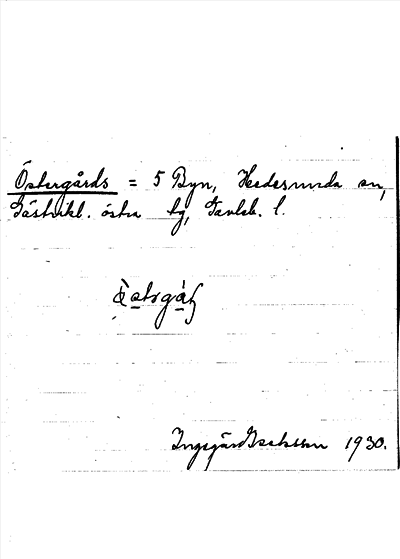 Östergårds = 5 Byn, Hedesunda sn,
Gästrikl. östra tg, Gävleb. l.
Ingegärd Isaksson 1930.